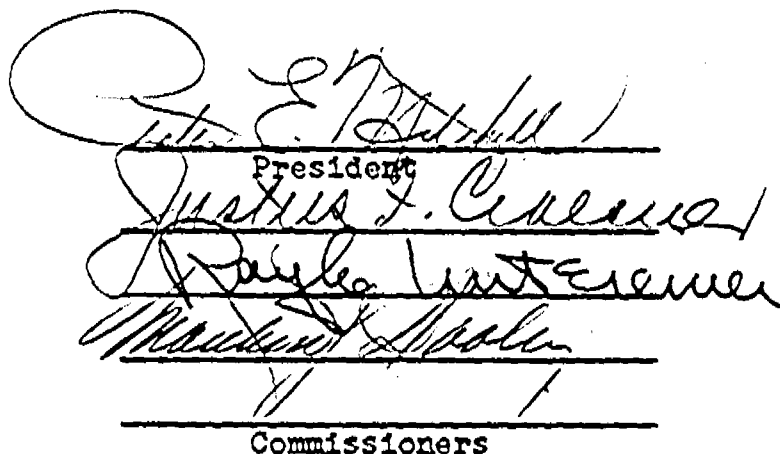 Peter E. Mitchell
President
Justus F. Craemer
Ray L. Untereiner
Matthew J. Dooley
Commissioners